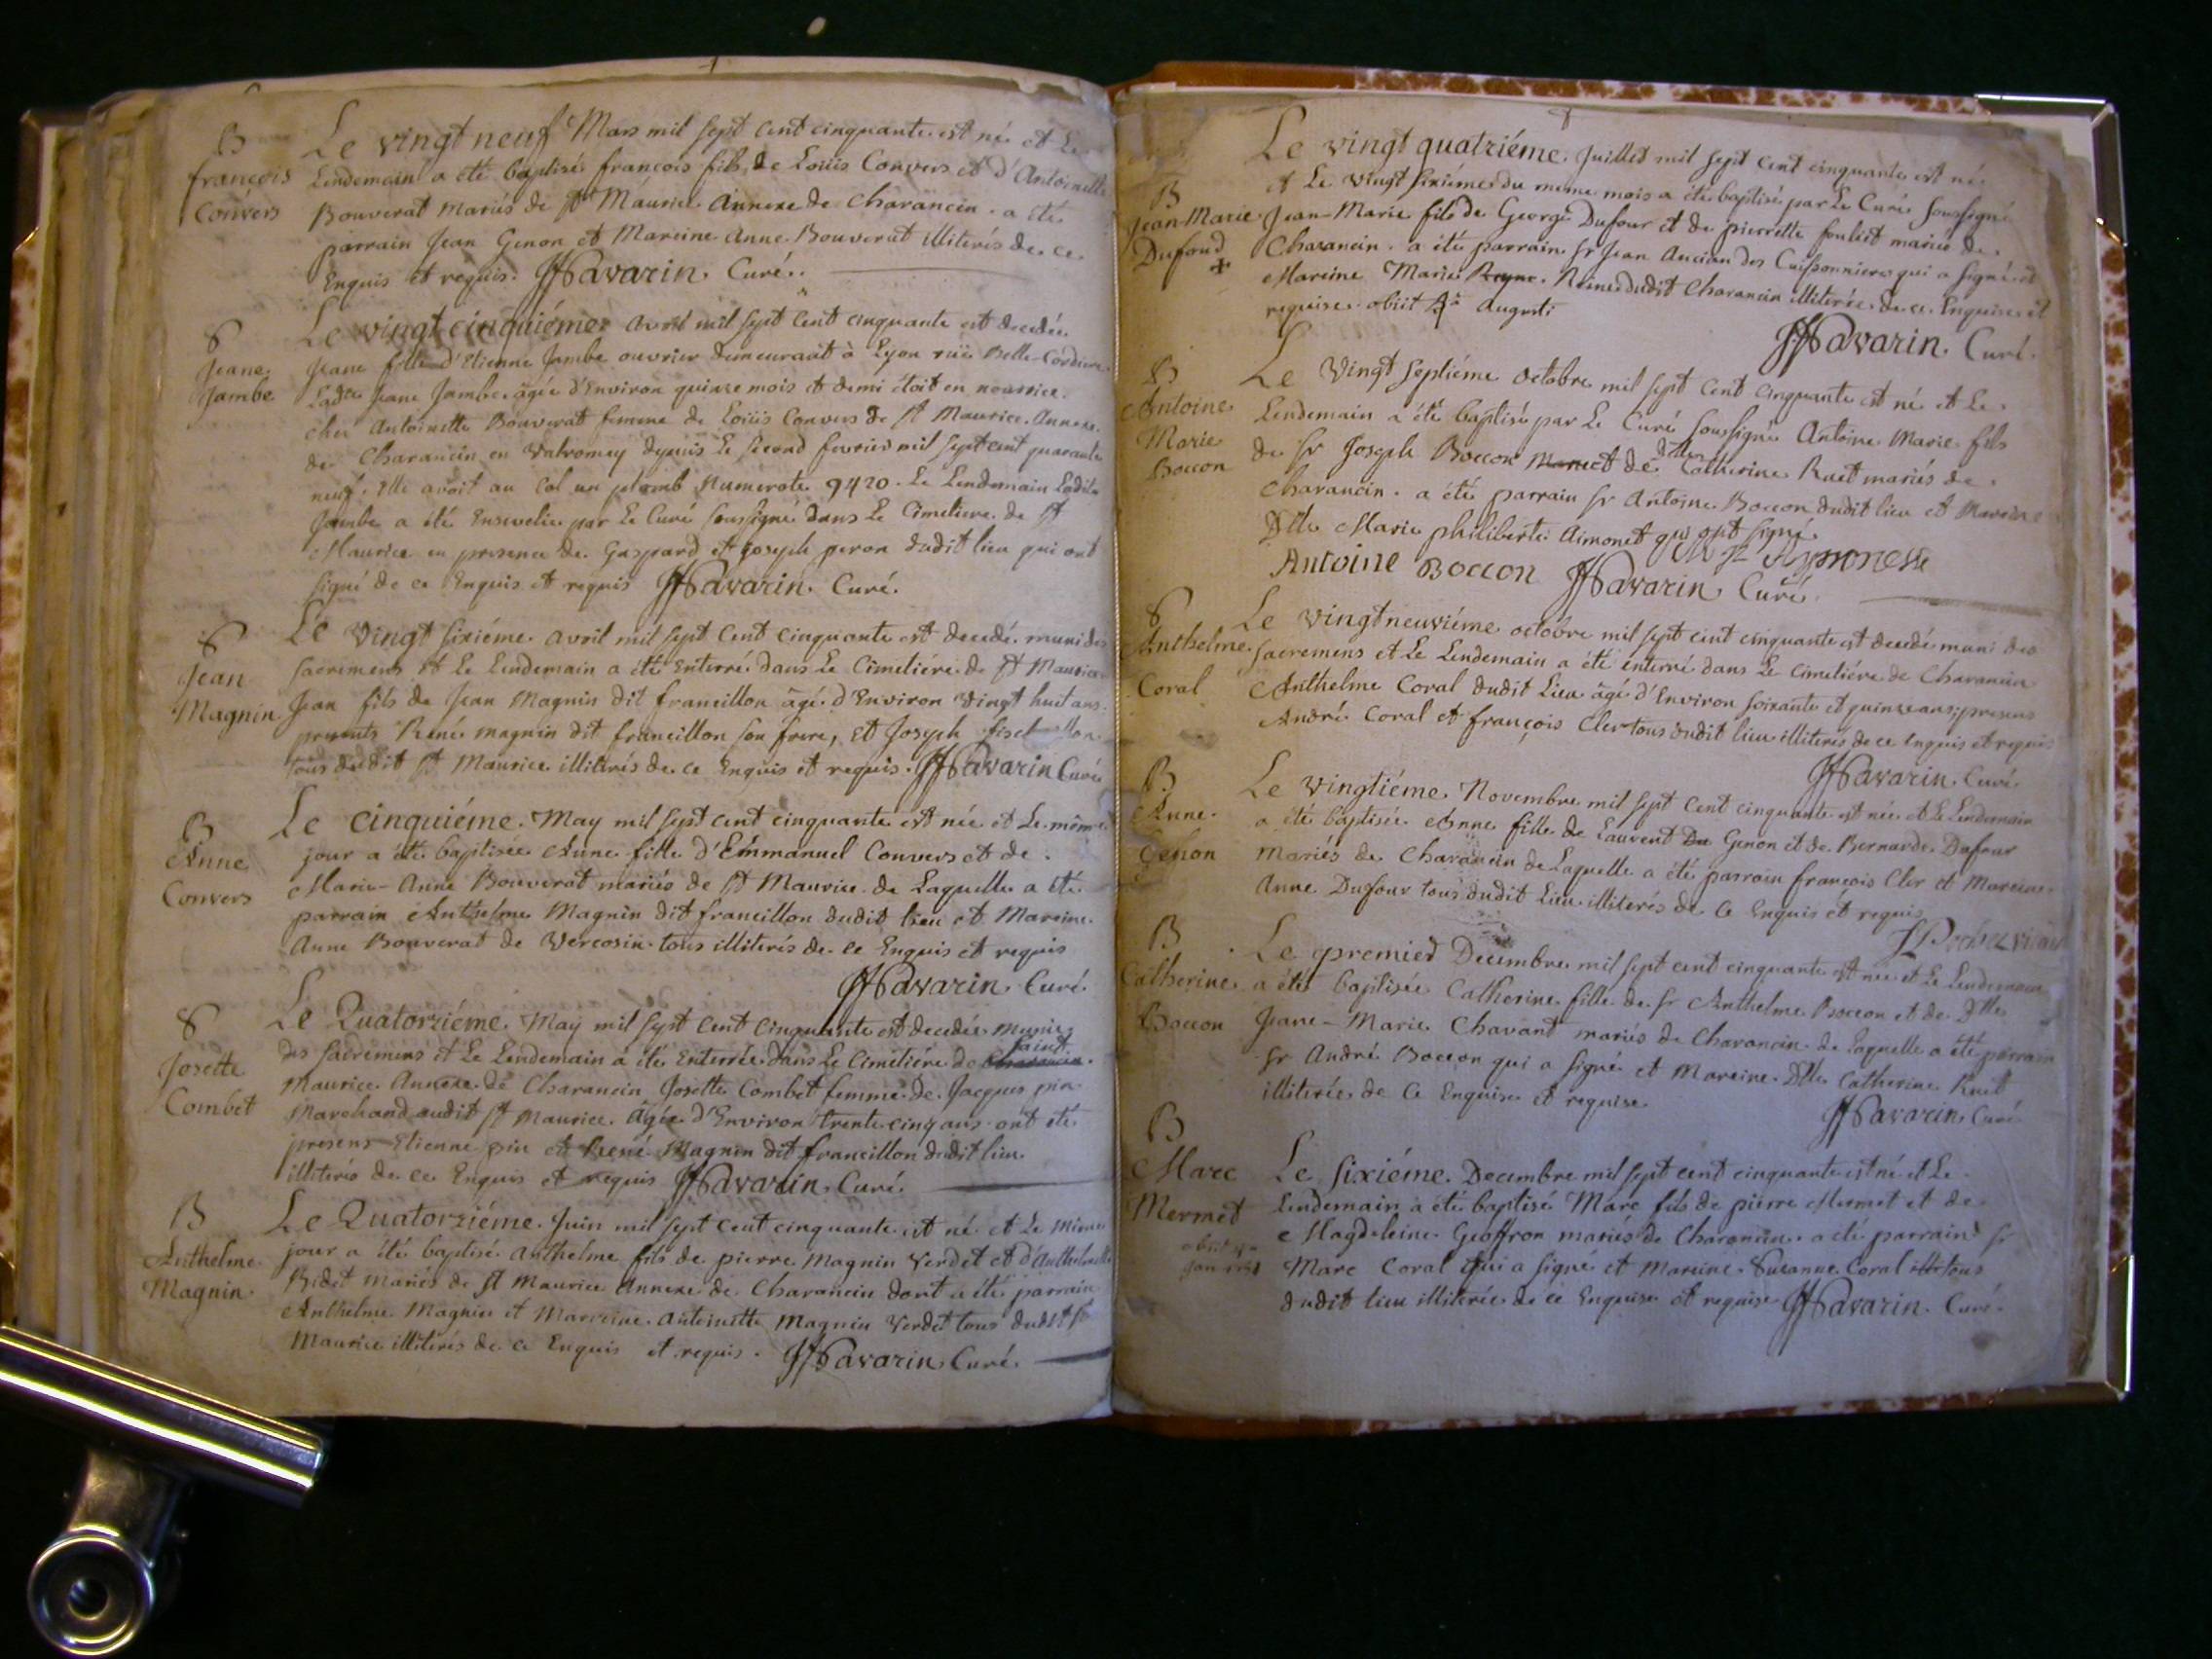 B
françois
Convers
Le vingt neuf Mars mil sept cent cinquante est né et Le
Lendemain a été baptisé françois fils de Loüis Convers et d'Antoinette
Bouverat Mariés de St Maurice Annexe de Charancin. a été
parrain Jean Genon et Mareine Anne Bouverat illiterés de ce
Enquis et requis. Savarin. Curé.
S
Jeane
Jambe
Le vingt cinquiéme avril mil sept cent cinquante est decedée
Jeane fille d'Etienne Jambe ouvrier demeurant à Lyon rüe Belle-Cordiere
Ladte Jeane Jambe agée d'Environ quinze mois et demi étoit en nourrice
chés Antoinette Bouverat femme de Loüis Convers de St Maurice Annexe
de Charancin en Valromey depuis le second fevrier mil sept cent quarante
neuf. Elle avoit au Col un plomb Numeroté 9420. Le Lendemain Ladite
Jambe a été Ensevelie par Le Curé soussigné dans Le Cimetiere de St
Maurice en presence de Gaspard et Joseph peron dudit lieu qui ont
signé de ce Enquis et requis Savarin. Curé.
S
Jean
Magnin
Le vingt sixiéme avril mil sept cent cinquante est decedé muni des
sacremens et Le Lendemain a été enterré dans Le Cimetiére de St Maurice
Jean fils de Jean Magnin dit francillon âgé d'Environ vingt huit ans.
presents René magnin dit francillon son frere, et Joseph
tous dudit St Maurice illiterés de ce Enquis et requis. Savarin Curé
B
Anne
Convers
Le cinquiéme May mil sept cent cinquante est née et Le même
jour a été baptisée Anne fille d'Emmanuel Convers et de
Marie-Anne Bouverat mariés de St Maurice de Laquelle a été
parrain Anthelme Magnin dit francillon dudit lieu et Mareine
Anne Bouverat de Vercosin tous illiterés de ce Enquis et requis
Savarin Curé
S
Josette
Combet
Le Quatorziéme May mil sept cent cinquante est decedée munie
des sacremens et Le Lendemain a été Enterrée dans Le Cimetiére de Charancin Saint
Maurice Annexe de Charancin Josette Combet femme de Jacques pin
Marchand dudit St Maurice Agée d'Environ trente cinq ans. ont été
presens Etienne pin et René Magnin dit francillon dudit lieu
illiterés de ce Enquis et requis Savarin Curé.
B
Anthelme
Magnin
Le Quatorziéme Juin mil sept cent cinquante est né et Le même
jour a été baptisé Anthelme fils de pierre Magnin Verdet et d'Anthelmette
Bidet mariés de St Maurice Annexe de Charancin dont a été parrain
Anthelme Magnin et Marreine Antoinette Magnin Verdet tous dudit St
Maurice illiterés de ce Enquis et requis. Savarin Curé.
B
Jean-Marie
Dufour
Le vingt quatriéme Juillet mil sept cent cinquante est né
et Le vingt sixiéme du meme mois a été baptisé par Le Curé soussigné
Jean-Marie fils de Georgé Dufour et de pierrette foulet mariés de
Charancin. a été parrain sr Jean Ancian des Cuissonnieres qui a signé et
Mareine Marie Reyne Reine dudit Charancin illiterée de ce Enquise et
requise. obiit Augusti
Savarin. Curé.
B
Antoine
Marie
Boccon
Le Vingt septiéme octobre mil sept cent cinquante est né et Le
Lendemain a été baptisé par Le Curé soussigné Antoine Marie fils
de sr Joseph Boccon et de Dlle Catherine Ruet mariés de
Charancin. a été parrain sr Antoine Boccon dudit lieu et Mareine
Dlle Marie philiberte Aimonet qui ont signé
Antoine Boccon Savarin Curé
S
Anthelme
Coral
Le vingtneuviéme octobre mil sept cent cinquante est decedé muni des
sacremens et Le Lendemain a été enterré dans Le Cimetiére de Charancin
Anthelme Coral dudit Lieu âgé d'Environ soixante et quinze ans; presens
André Coral et françois Cler tous dudit lieu illiterés de ce Enquis et requis
Savarin. Curé.
B
Anne
Genon
Le vingtiéme Novembre mil sept cent cinquante est née et Le Lendemain
a été baptisée Anne fille de Laurent Du Genon et de Bernarde Dufour
Mariés de Charancin de Laquelle a été parrain françois Cler et Mareine
Anne Dufour tous dudit Lieu illiterés de Ce Enquis et requis
B
Catherine
Boccon
Le premier Decembre mil sept cent cinquante est née et Le Lendemain
a été baptisée Catherine fille de sr Anthelme Boccon et de Dlle
Jeane-Marie Chavant mariés de Charancin de Laquelle a été parrain
sr André Boccon qui a signé et Mareine Dlle Catherine Ruet
illiterée de Ce Enquise et requise
Savarin Curé
B
Marc
Mermet
Le sixiéme Decembre mil sept cent cinquante est né et Le
Lendemain a été baptisé Marc fils de pierre Mermet et de
Magdeleine Geoffron mariés de Charancin. a été parrain sr
Marc Coral qui a signé et Mareine Suzanne Coral tous
dudit lieu illiterée de ce Enquise et requise Savarin. Curé.